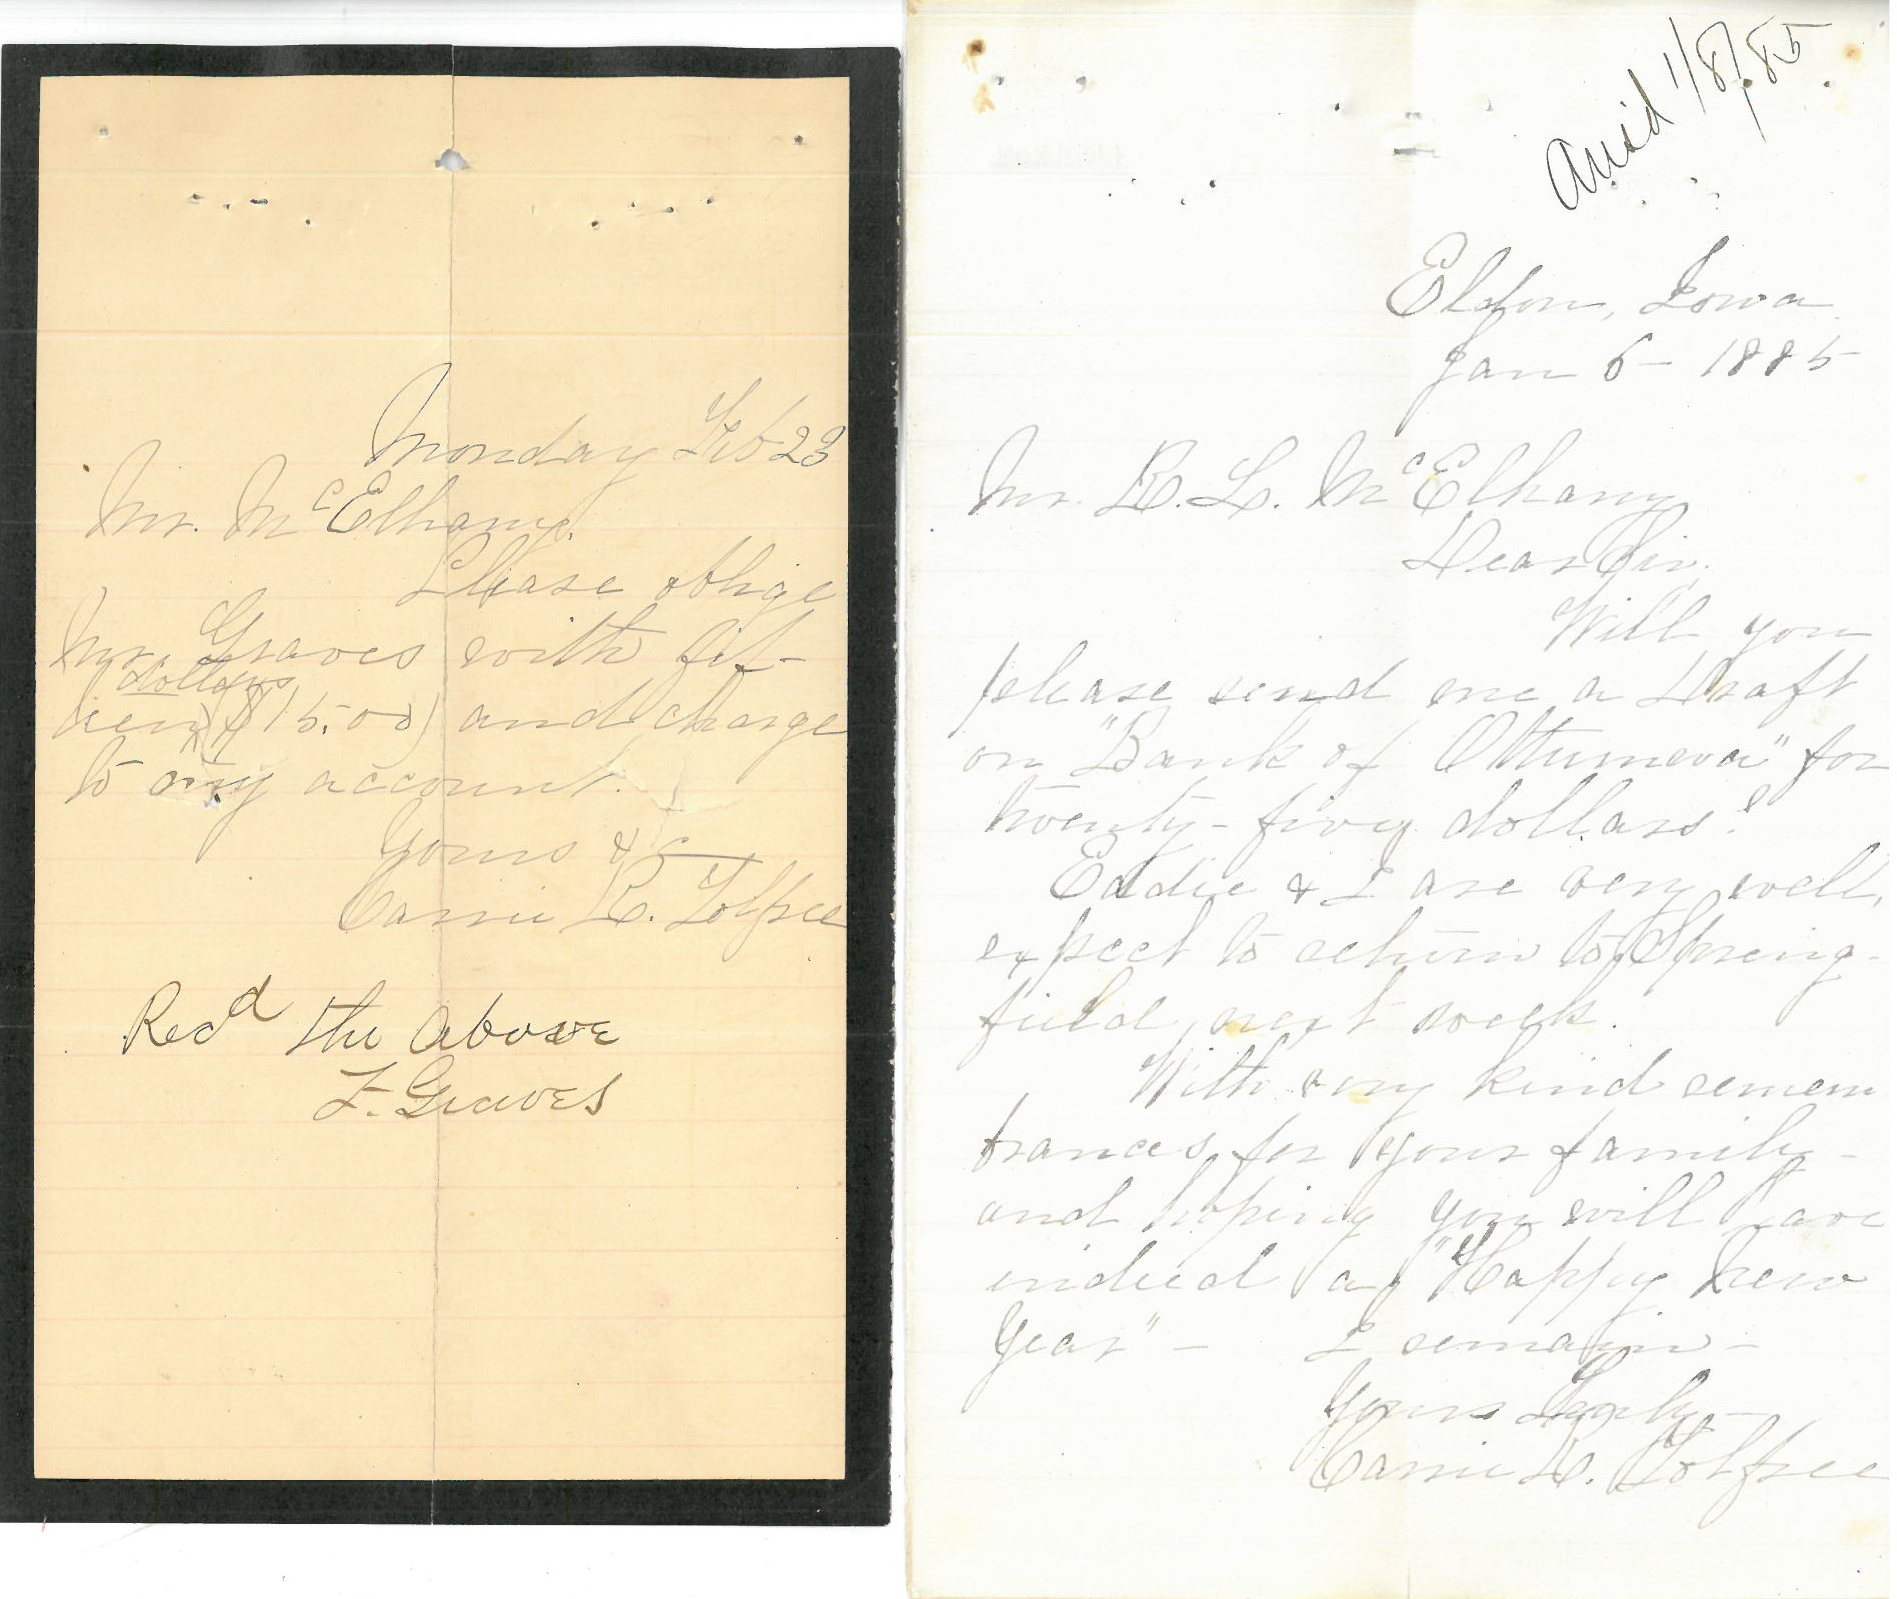 Monday Feb 23
Mr. McElhany.
Please oblige
Mr. Graves with fif-
dollars
teen ($15.00) and charge
to my account.
Yours &c
Carrie R. Tolfree
Recd the above
F. Graves
Ansd 1/8/85
Eldon, Iowa.
Jan 6 - 1885
Mr. R. L. McElhany
Dear Sir,
Will you
please send me a Draft
on "Bank of Ottumwa" for
twenty-five dollars?
Eddie & I are very well,
expect to return to Spring-
field, next week.
With my kind remem
brances for your family -
and hoping you will have
indeed a "Happy New
Year" - I remain -
Yours Truly -
Carrie R. Tolfree